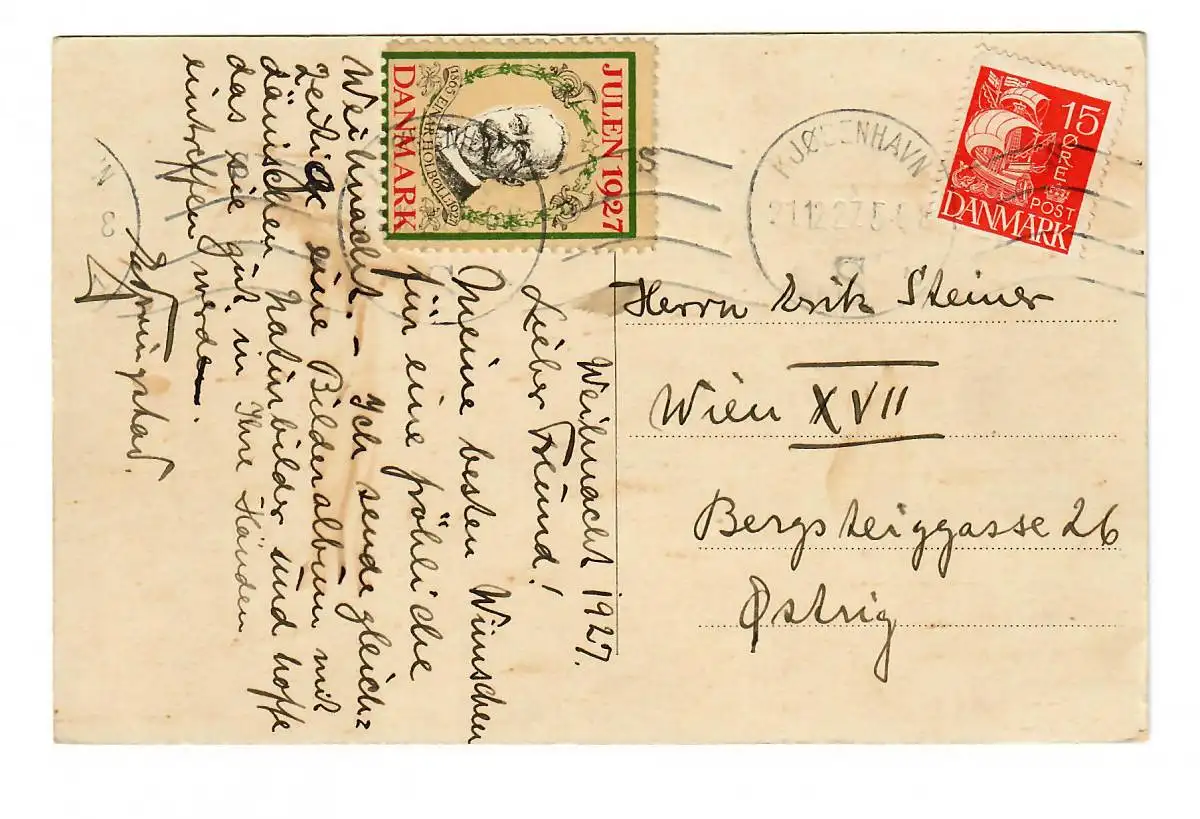 Weihnacht 1927.
Lieber Freund!
Meine besten Wünschen
für eine fröhliche
Weihnacht. - Ich sende gleich=
zeitig eine Bilderalbum mit
dänischen Naturbilder und hoffe
das sie gut in Ihre Händen
eintreffen werden.
JULEN 1927
1865 EINAR HOLBØLL 1927
DANMARK
KJØBENHAVN
21.12.27.5-
15
ØRE
POST
DANMARK
Herrn Erik Steiner
Wien XVII
Bergsteiggasse 26
Østrig